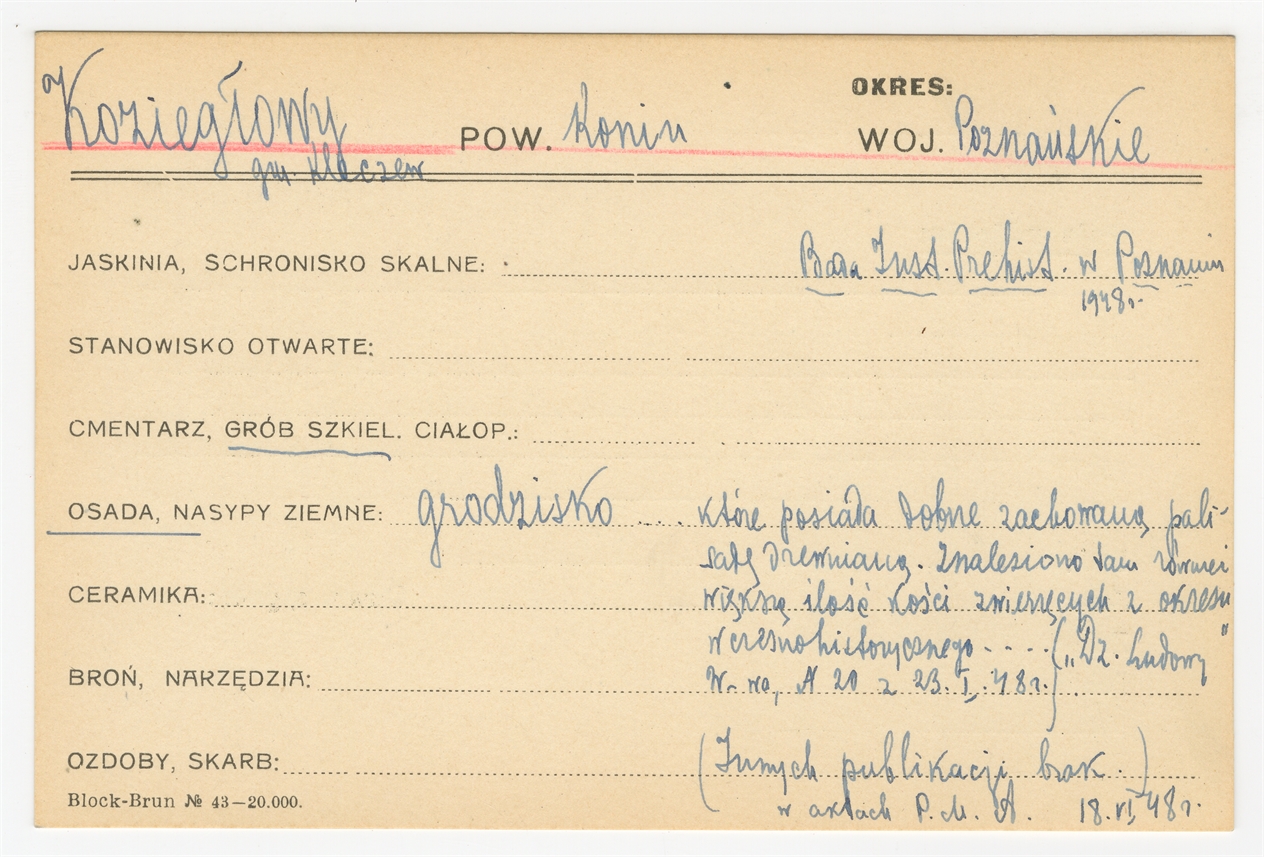 OKRES:
Koziegłowy POW. Konin WOJ. Poznańskie
gm. Kleczew
JASKINIA, SCHRONISKO SKALNE: Bada Inst. Prehist. w Poznaniu
1948r.
STANOWISKO OTWARTE:
CMENTARZ, GRÓB SZKIEL. CIAŁOP.:
OSADA, NASYPY ZIEMNE: grodzisko .... które posiada dobrze zachowaną pali-
sadę drewnianą. Znaleziono tam również
CERAMIKA: większą ilość kości zwierzęcych z okresu
wczesnohistorycznego ..... („Dz. Ludowy"
BROŃ, NARZĘDZIA: W-wa, N 20 z 23.I.48r.)
OZDOBY, SKARB: (Innych publikacji brak.)
w aktach P.M.A. 18.VI.48r.
Block-Brun № 43—20.000.